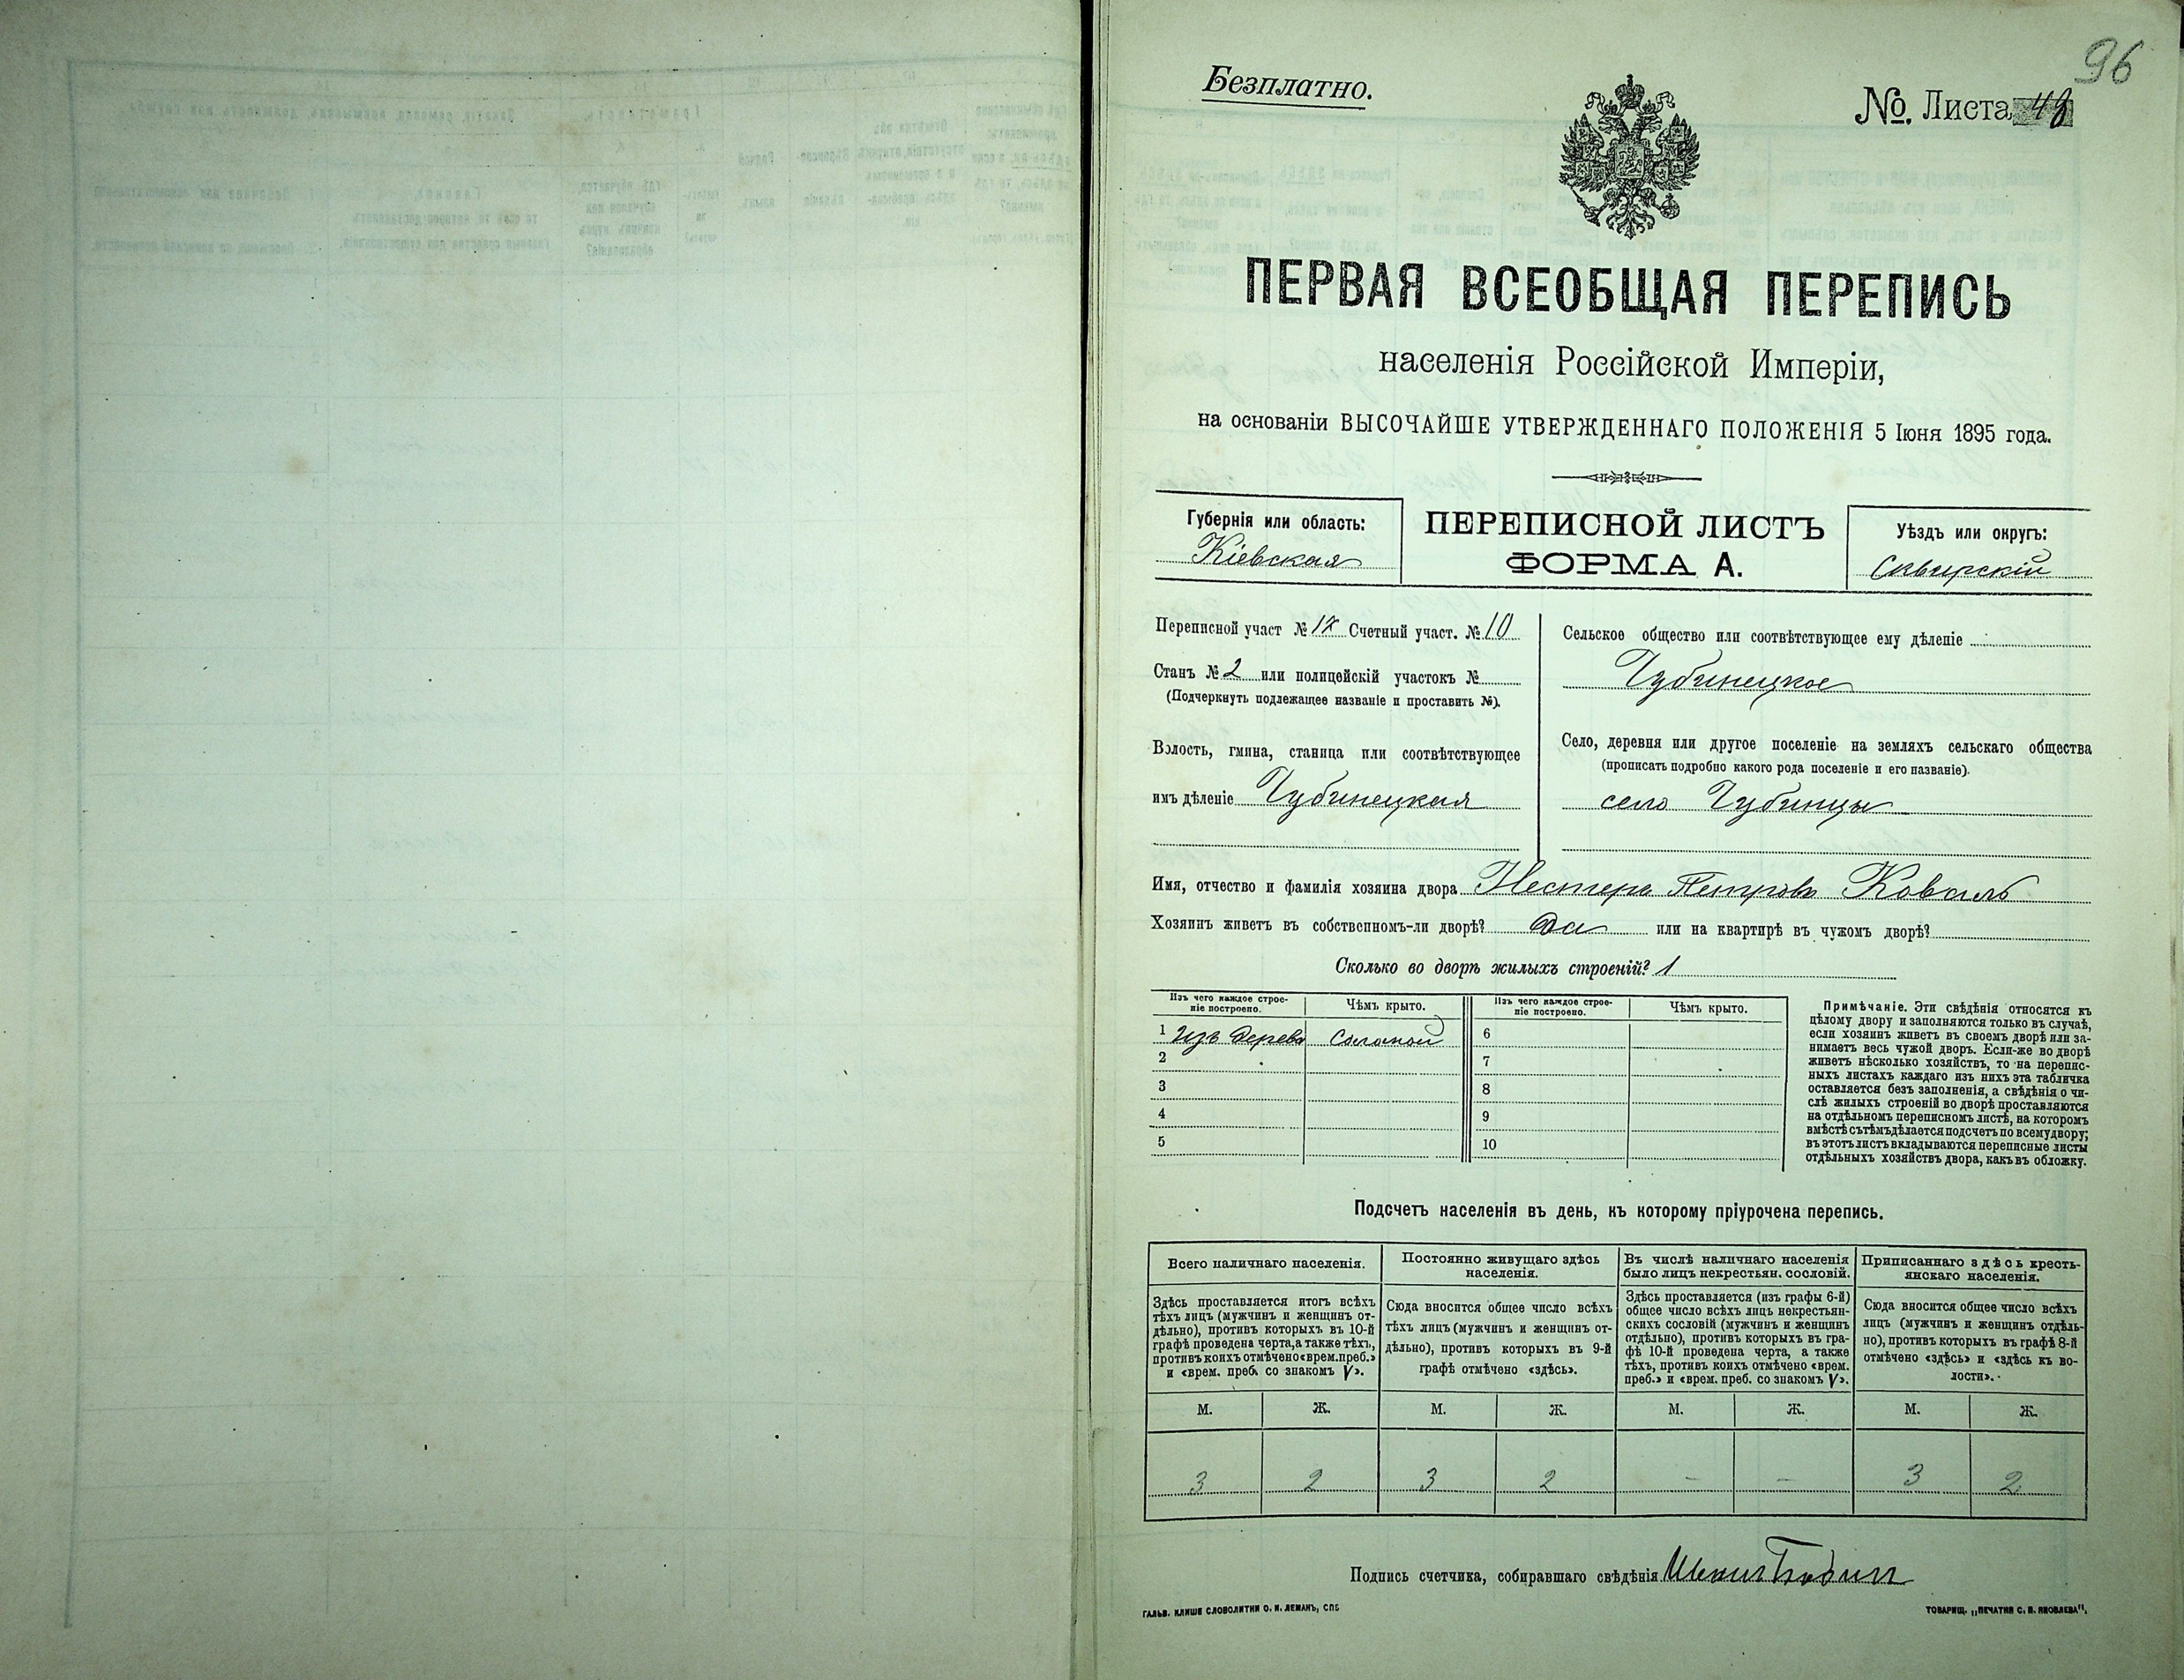 96
Безплатно.
№. Листа 48
ПЕРВАЯ ВСЕОБЩАЯ ПЕРЕПИСЬ
населенія Россійской Имперіи,
на основаніи ВЫСОЧАЙШЕ УТВЕРЖДЕННАГО ПОЛОЖЕНІЯ 5 Іюня 1895 года.
Губернія или область:
Кіевская
ПЕРЕПИСНОЙ ЛИСТЪ
ФОРМА А.
Уѣздъ или округъ:
Сквирскій
Переписной участ № Счетный участ. № 10
Станъ № 2 или полицейскій участокъ №
(Подчеркнуть подлежащее названіе и проставить №).
Волость, гмина, станица или соотвѣтствующее
имъ дѣленіе Чубинецкая
Сельское общество или соотвѣтствующее ему дѣленіе
Чубинецкое
Село, деревня или другое поселеніе на земляхъ сельскаго общества
(прописать подробно какого рода поселеніе и его названіе).
село Чубинцы
Имя, отчество и фамилія хозяина двора Нестеръ Петровъ Коваль
Хозяинъ живетъ въ собственномъ-ли дворѣ? Да или на квартирѣ въ чужомъ дворѣ?
Сколько во дворѣ жилыхъ строеній? 1
Изъ чего каждое строе-
ніе построено.
Чѣмъ крыто.
Изъ чего каждое строе-
ніе построено.
Чѣмъ крыто.
1 Изъ дерева Соломой 6
2 7
3 8
4 9
5 10
Примѣчаніе. Эти свѣдѣнія относятся къ
цѣлому двору и заполняются только въ случаѣ,
если хозяинъ живетъ въ своемъ дворѣ или за-
нимаетъ весь чужой дворъ. Если-же во дворѣ
живетъ нѣсколько хозяйствъ, то на перепис-
ныхъ листахъ каждаго изъ нихъ эта табличка
оставляется безъ заполненія, а свѣдѣнія о чи-
слѣ жилыхъ строеній во дворѣ проставляются
на отдѣльномъ переписномъ листѣ, на которомъ
вмѣстѣ съ тѣмъ дѣлается подсчетъ по всему двору;
въ этотъ листъ вкладываются переписные листы
отдѣльныхъ хозяйствъ двора, какъ въ обложку.
Подсчетъ населенія въ день, къ которому пріурочена перепись.
Всего наличнаго населенія.
Здѣсь проставляется итогъ всѣхъ
тѣхъ лицъ (мужчинъ и женщинъ от-
дѣльно), противъ которыхъ въ 10-й
графѣ проведена черта, а также тѣхъ,
противъ коихъ отмѣчено «врем. преб.»
и «врем. преб. со знакомъ V».
Постоянно живущаго здѣсь
населенія.
Сюда вносится общее число всѣхъ
тѣхъ лицъ (мужчинъ и женщинъ от-
дѣльно), противъ которыхъ въ 9-й
графѣ отмѣчено «здѣсь».
Въ числѣ наличнаго населенія
было лицъ некрестьян. сословій.
Здѣсь проставляется (изъ графы 6-й)
общее число всѣхъ лицъ некрестьян-
скихъ сословій (мужчинъ и женщинъ
отдѣльно), противъ которыхъ въ гра-
фѣ 10-й проведена черта, а также
тѣхъ, противъ коихъ отмѣчено «врем.
преб.» и «врем. преб. со знакомъ V».
Приписаннаго здѣсь кресть-
янскаго населенія.
Сюда вносится общее число всѣхъ
лицъ (мужчинъ и женщинъ отдѣль-
но), противъ которыхъ въ графѣ 8-й
отмѣчено «здѣсь» и «здѣсь къ во-
лости».
М. Ж. М. Ж. М. Ж. М. Ж.
3 2 3 2 – – 3 2
Подпись счетчика, собиравшаго свѣдѣнія
ГАЛЬВ. КЛИШЕ СЛОВОЛИТНИ О. И. ЛЕМАНЪ, СПБ
ТОВАРИЩ. „ПЕЧАТНЯ С. П. ЯКОВЛЕВА".